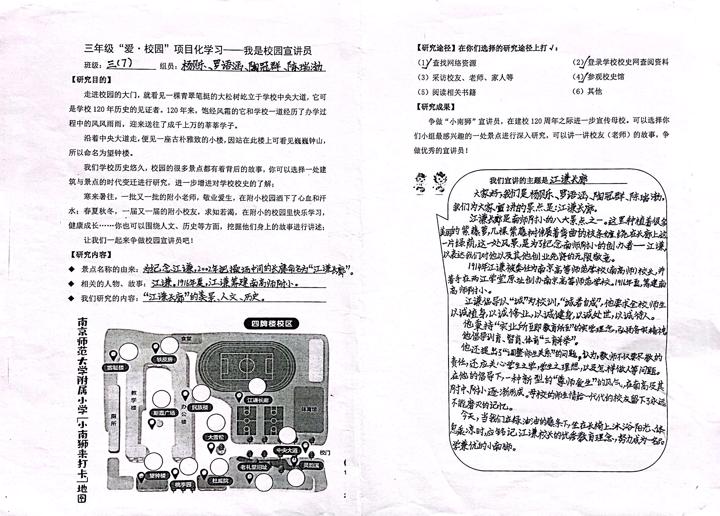 三年级“爱·校园”项目化学习——我是校园宣讲员
班级：三(7) 组员：杨陈、罗语涵、陶冠群、陈瑞渤
【研究目的】
走进校园的大门，就看见一棵青翠笔挺的大松树屹立于学校中央大道，它可
是学校120年历史的见证者。120年来，饱经风霜的它和学校一道经历了办学过
程中的风风雨雨，迎来送往了成千上万的莘莘学子。
沿着中央大道走，便见一座古朴雅致的小楼，因站在此楼上可看见巍巍钟山，
所以命名为望钟楼。
我们学校历史悠久，校园的很多景点都有着背后的故事，你可以选择一处建
筑与景点的时代变迁进行研究，进一步增进对学校校史的了解；
寒来暑往，一批又一批的附小老师，敬业爱生，在附小校园洒下了心血和汗
水；春夏秋冬，一届又一届的附小校友，求知若渴，在附小的校园里快乐学习，
健康成长……你也可以围绕人文、历史等方面，挖掘他们身上的故事进行讲述；
让我们一起来争做校园宣讲员吧！
【研究内容】
景点名称的由来：为纪念江谦，2002年把操场中间的长廊命名为“江谦长廊”。
相关的人物、故事：江谦，1916年夏，江谦筹建南高师附小。
我们研究的内容：“江谦长廊”的美景、人文、历史。
南京师范大学附属小学「小南狮来打卡」地图
四牌楼校区
铁皮房
教学楼
厕所
斯霞广场
办公楼
民族楼
江谦长廊
体育馆
大雪松
中央大道
校门
灵韵溪
老礼堂旧址
望钟楼
桃李园
杜威院
【研究途径】在你们选择的研究途径上打√：
(1)查找网络资源 (2)登录学校校史网查阅资料
(3)采访校友、老师、家人等 (4)参观校史馆
(5)阅读相关书籍 (6)其他
【研究成果】
争做“小南狮”宣讲员，在建校120周年之际进一步宣传母校。可以选择你
们小组最感兴趣的一处景点进行深入研究，可以讲一讲校友（老师）的故事，争
做优秀的宣讲员！
我们宣讲的主题是江谦长廊
大家好，我们是杨陈、罗语涵、陶冠群、陈瑞渤。
我们为大家宣讲的景点是：江谦长廊。
江谦长廊是南师附小的八大景点之一。这里种植着很多
美丽的紫藤萝，几棵紫藤树伸展着弯曲的枝条缠绕在长廊上，这
一片绿荫，这一处风景，是为了纪念南师附小的创办者——江谦，
以表达我们对他以及其他创业先贤的无限敬意。
1914年江谦被委任为南京高等师范学校(南高师)校长，并
着手在两江学堂原址创办南京高等师范学校。1916年夏，筹建南
高师附小。
江谦倡导以“诚”为校训，“诚者自成”，他要求全校师生
以诚植身，以诚修业，以诚健身，以诚处世，以诚待人。
他秉持“实业所至即教育所至”的实学理念，
他倡导训育、智育、体育“三育并举”。
他还提出了“调整师生关系”的问题，认为，教师不仅要求教的
责任，还应关心学生之学，学生之理想，以及怎样做人等问题。
在他的倡导下，一种新型的“尊师爱生”的风气，在南高及其
附中、附小逐渐形成。母校的师生情给一代代的校友留下了永远
不能磨灭的记忆。
今天，当我们在绿油油的藤条下，坐在长椅上，沐浴阳光，
江谦校长的优秀教育理念，努力成为一名品
学兼优的小南狮。